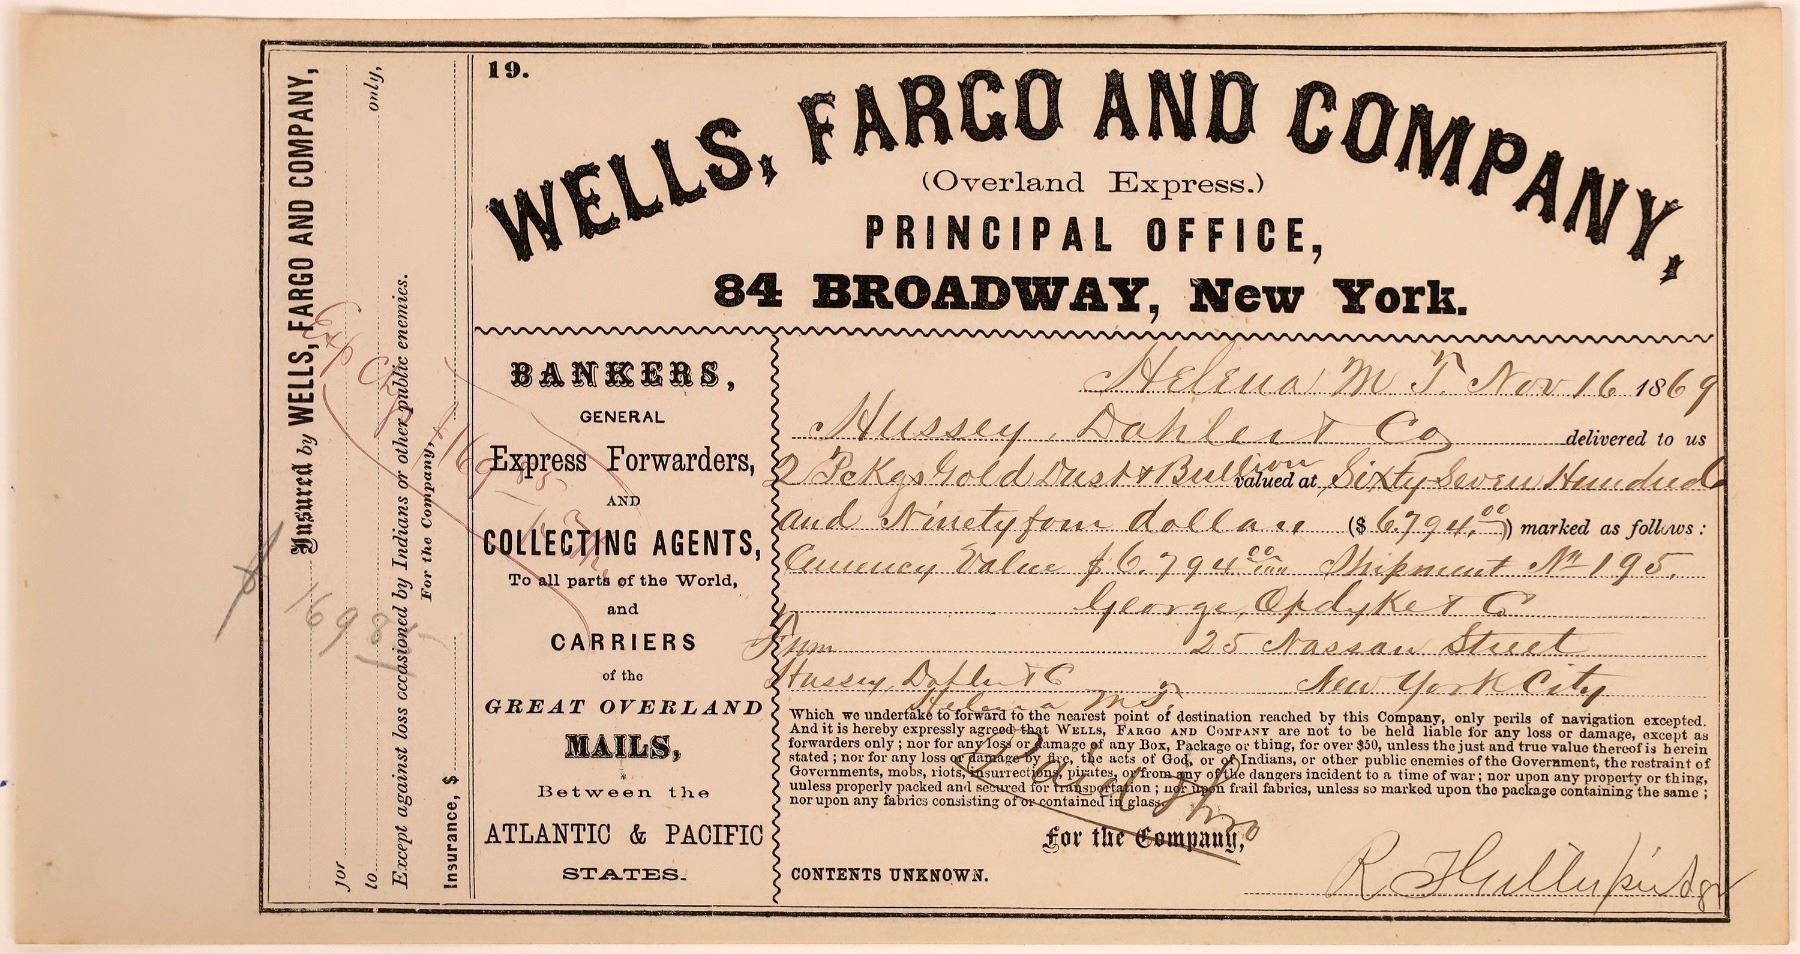 19.
WELLS, FARGO AND COMPANY,
(Overland Express.)
PRINCIPAL OFFICE,
84 BROADWAY, New York.
Insured by WELLS, FARGO AND COMPANY,
for
to only,
Except against loss occasioned by Indians or other public enemies.
For the Company,
Insurance, $
Exp Chgs
$169 85
$ 169 85
BANKERS,
GENERAL
Express Forwarders,
AND
COLLECTING AGENTS,
To all parts of the World,
and
CARRIERS
of the
GREAT OVERLAND
MAILS,
Between the
ATLANTIC & PACIFIC
STATES.
Helena M T. Nov 16 1869
Hussey, Dahler & Co delivered to us
2 Pckgs Gold Dust & Bullion valued at Sixty Seven Hundred
and Ninety four dollars ($ 6.794.00) marked as follows:
Currency Value $ 6.794 00 Shipment No 195.
George, Opdyke & C
From 25 Nassau Street
Hussey, Dahler & C New York City
Helena M T.
Which we undertake to forward to the nearest point of destination reached by this Company, only perils of navigation excepted.
And it is hereby expressly agreed that WELLS, FARGO AND COMPANY are not to be held liable for any loss or damage, except as
forwarders only; nor for any loss or damage of any Box, Package or thing, for over $50, unless the just and true value thereof is herein
stated; nor for any loss or damage by fire, the acts of God, or of Indians, or other public enemies of the Government, the restraint of
Governments, mobs, riots, insurrections, pirates, or from any of the dangers incident to a time of war; nor upon any property or thing,
unless properly packed and secured for transportation; nor upon frail fabrics, unless so marked upon the package containing the same;
nor upon any fabrics consisting of or contained in glass.
Paid Thro
For the Company,
CONTENTS UNKNOWN.
R